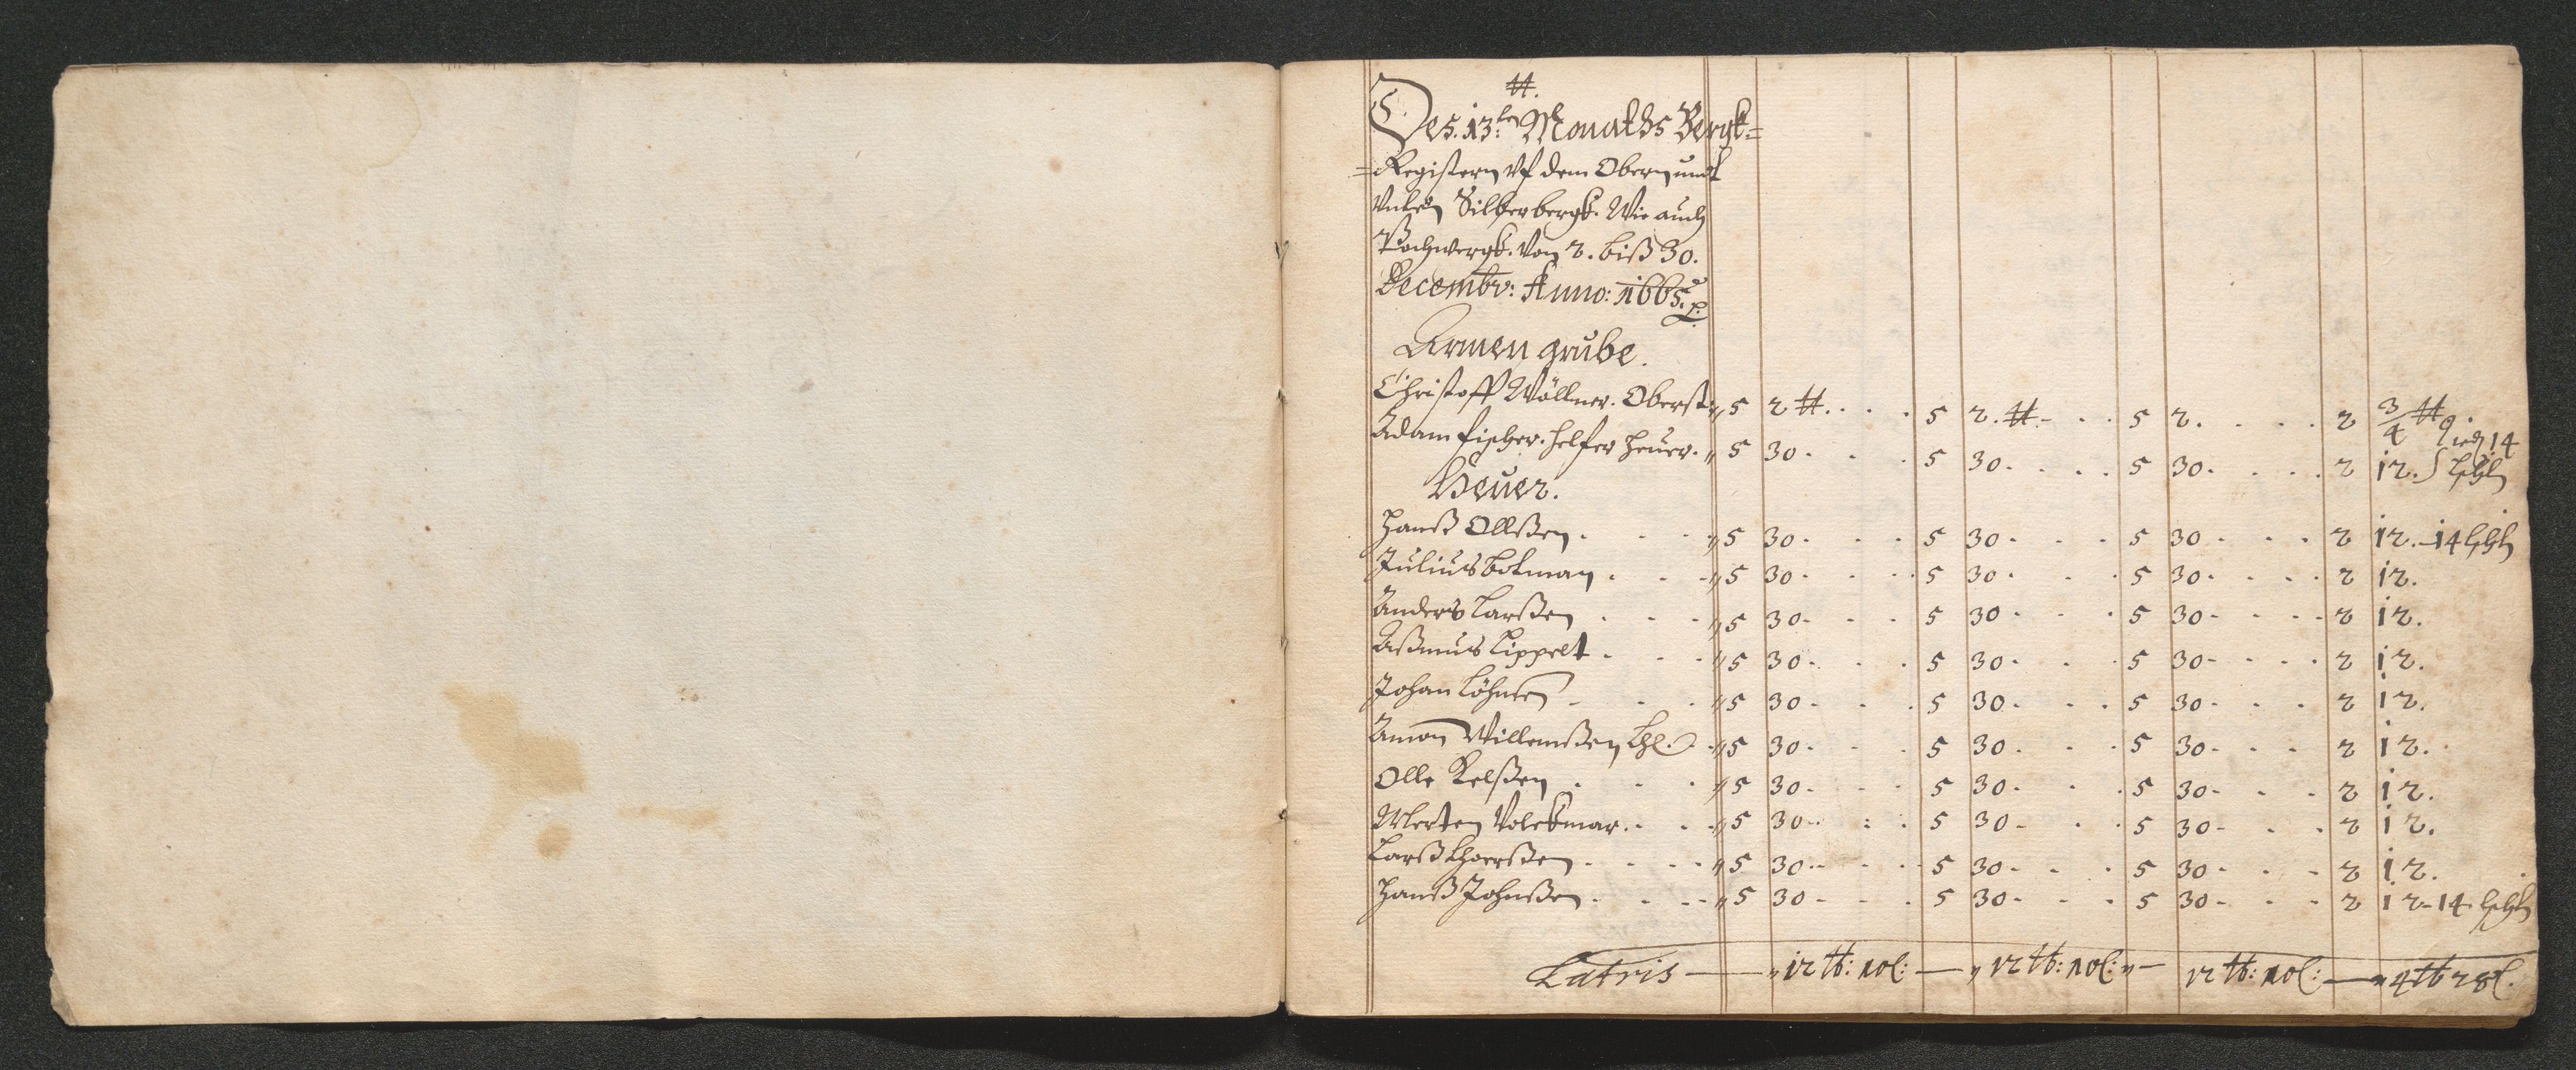 Des. 13:ten Monaths Bergk=
=Registern Vf dem Obern undt
Vntern Silberbergk. Wie auch
Pochwergk. Von 2. biß 30.
Decembr: Anno: 1665.
Armen grube.
Christoff Wöllner. Oberst: 5 2 5 2. 5 2. 2 3/4
Adam fischer. helfer heuer. 5 30. 5 30. 5 30. 2 12. 14
Heuer.
Hanß Ollßen. 5 30. 5 30. 5 30. 2 12. 14 ßhl
Julius botman. 5 30. 5 30. 5 30. 2 12.
Anders Larßen 5 30. 5 30. 5 30. 2 12.
Aßmus Lippelt. 5 30. 5 30. 5 30. 2 12.
Johan Löhnen 5 30. 5 30. 5 30. 2 12.
Amon Willemßen 5 30. 5 30. 5 30. 2 12.
Olle Kelßen. 5 30. 5 30. 5 30. 2 12.
Merten Volckmar. 5 30. 5 30. 5 30. 2 12.
Larß Thorßen. 5 30. 5 30. 5 30. 2 12.
Hanß Johnßen. 5 30 5 30. 5 30. 2 12-14 ßhl
Latris — 12 tb: 10ſ: — 12 tb: 10ſ: — 12 tb: 10ſ: — 4 tb 28ſ.